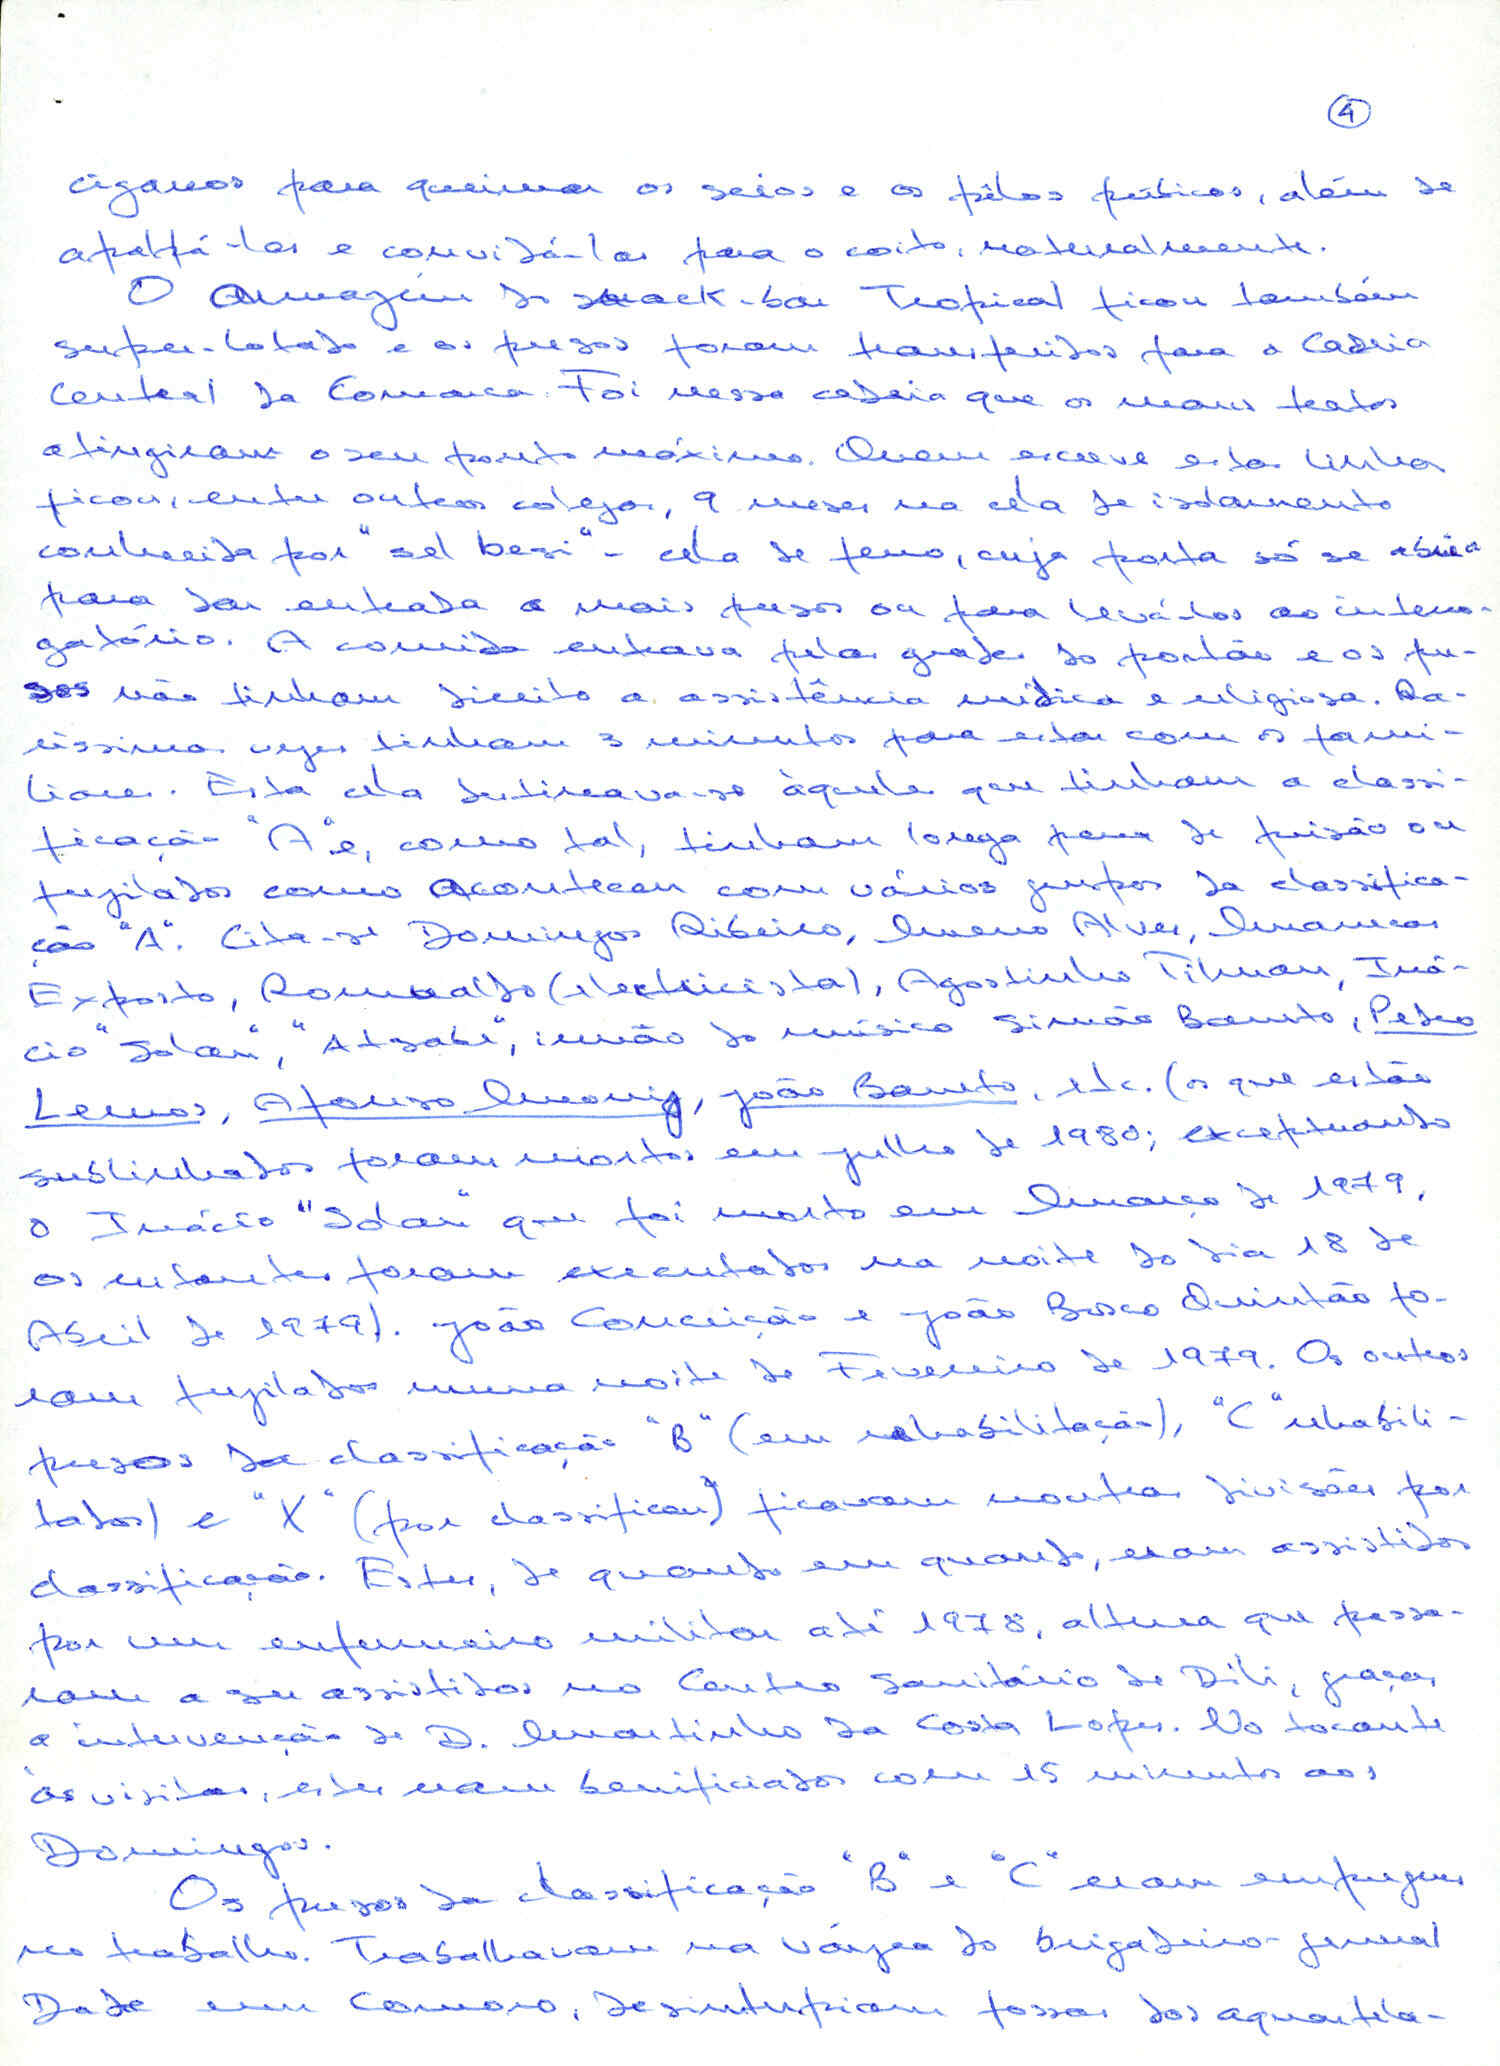 4
cigarros para queimar os seios e os pêlos púbicos, além de
apalpá-las e convidá-las para o coito, naturalmente.
O Armazém do snack-bar Tropical ficou também
super-lotado e os presos foram transferidos para a Cadeia
Central da Comarca. Foi nessa cadeia que os maus tratos
atingiram o seu ponto máximo. Quem escreve estas linhas
ficou, entre outros colegas, 9 meses na cela de isolamento
conhecida por "sel besi" - cela de ferro, cuja porta só se abria
para dar entrada a mais presos ou para levá-los ao interro-
gatório. A comida entrava pelas grades do portão e os pre-
sos não tinham direito a assistência médica e religiosa. Ra-
ríssimas vezes tinham 3 minutos para estar com os fami-
liares. Esta cela destinava-se àqueles que tinham a classi-
ficação "A" e, como tal, tinham longa pena de prisão ou
fuzilados como aconteceu com vários grupos da classifica-
ção "A". Cita-se Domingos Ribeiro, Moreno Alves, Mamamecas
Exposto, Romualdo (electricista), Agostinho Tilman, Iná-
cio "Solan", "Atsabe", irmão do músico Simão Barreto, Pedro
Lemos, Afonso Moniz, João Barreto, etc. (os que estão
sublinhados foram mortos em julho de 1980; exceptuando
o Inácio "Solan" que foi morto em Março de 1979,
os restantes foram executados na noite do dia 18 de
Abril de 1979). João Conceição e João Bosco Quintão fo-
ram fuzilados numa noite de Fevereiro de 1979. Os outros
presos da classificação "B" (em rehabilitação), "C" rehabili-
tados) e "X" (por classificar) ficavam noutras divisões por
classificação. Estes, de quando em quando, eram assistidos
por um enfermeiro militar até 1978, altura que passa-
ram a ser assistidos no Centro Sanitário de Díli, graças
a intervenção de D. Martinho da Costa Lopes. No tocante
às visitas, estes eram benificiados com 15 minutos aos
Domingos.
Os presos da classificação "B" e "C" eram empregues
no trabalho. Trabalhavam na várzea do brigadeiro-general
Dade em Comoro, desintupiam fossas dos aquartela-